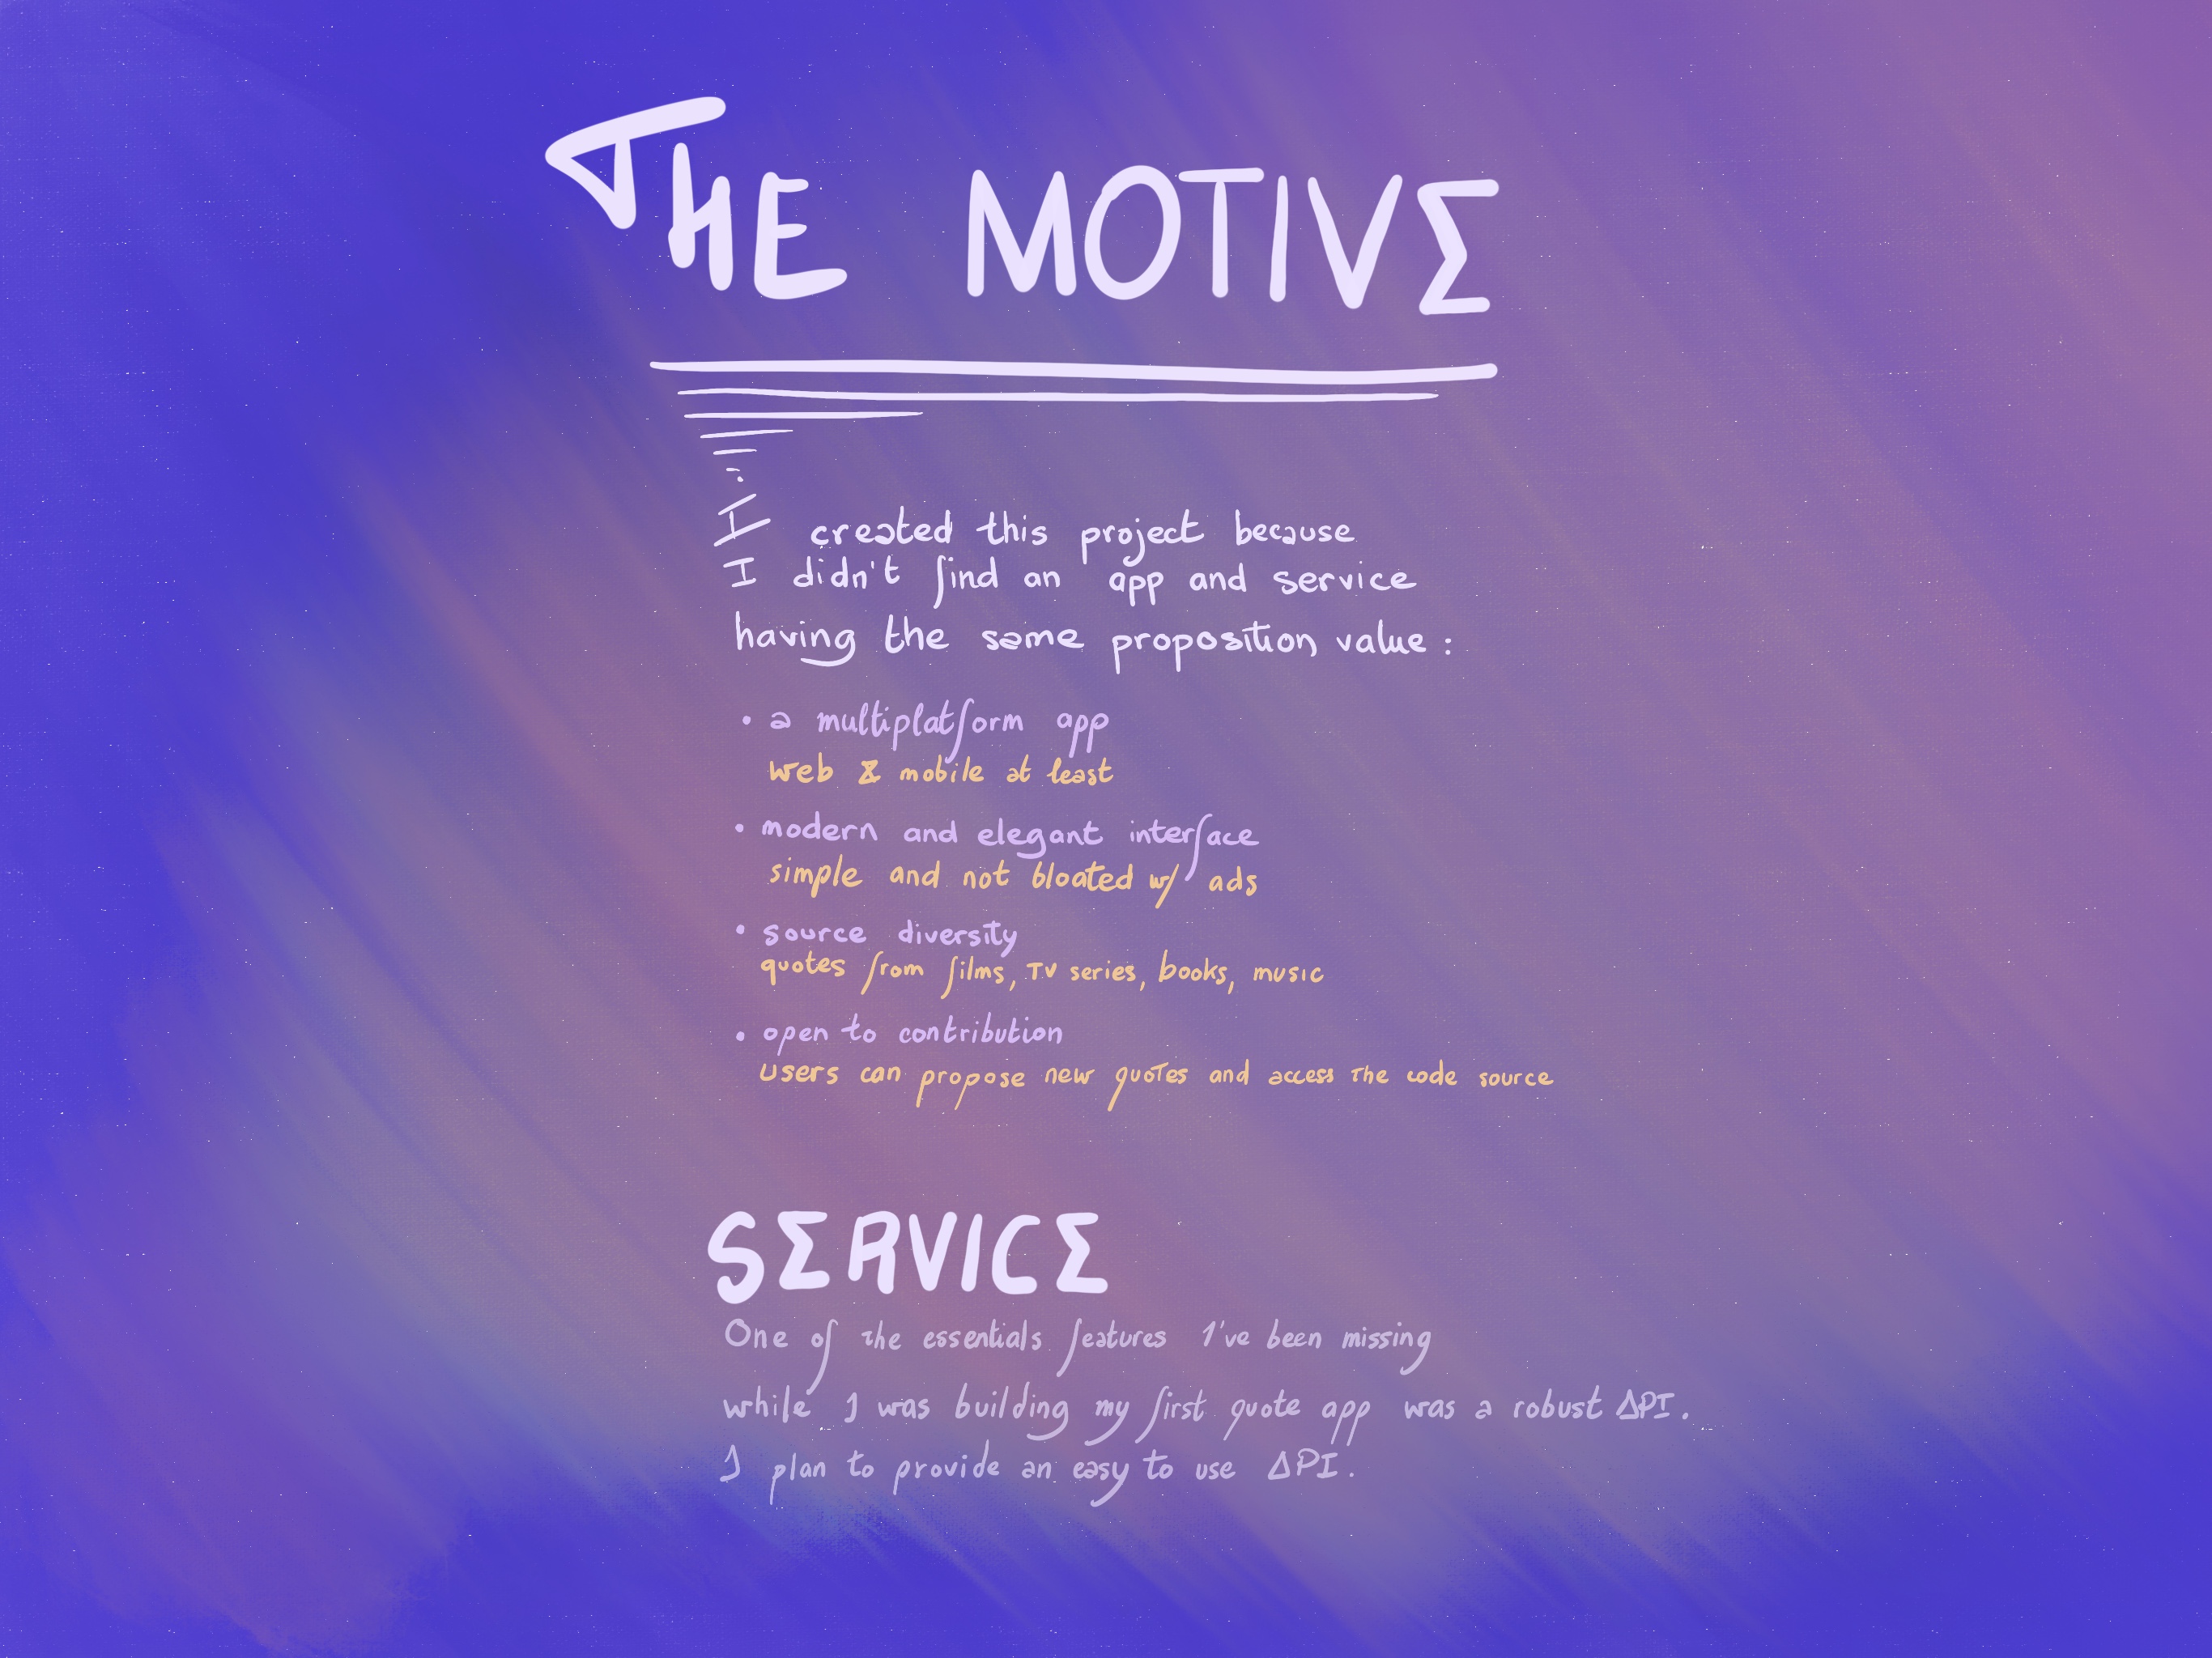 THE MOTIVE
I created this project because
I didn't find an app and service
having the same proposition value :
• a multiplatform app
web & mobile at least
• modern and elegant interface
simple and not bloated w/ ads
• source diversity
quotes from films, TV series, books, music
• open to contribution
users can propose new quotes and access the code source
SERVICE
One of the essentials features I've been missing
while I was building my first quote app was a robust API.
I plan to provide an easy to use API.